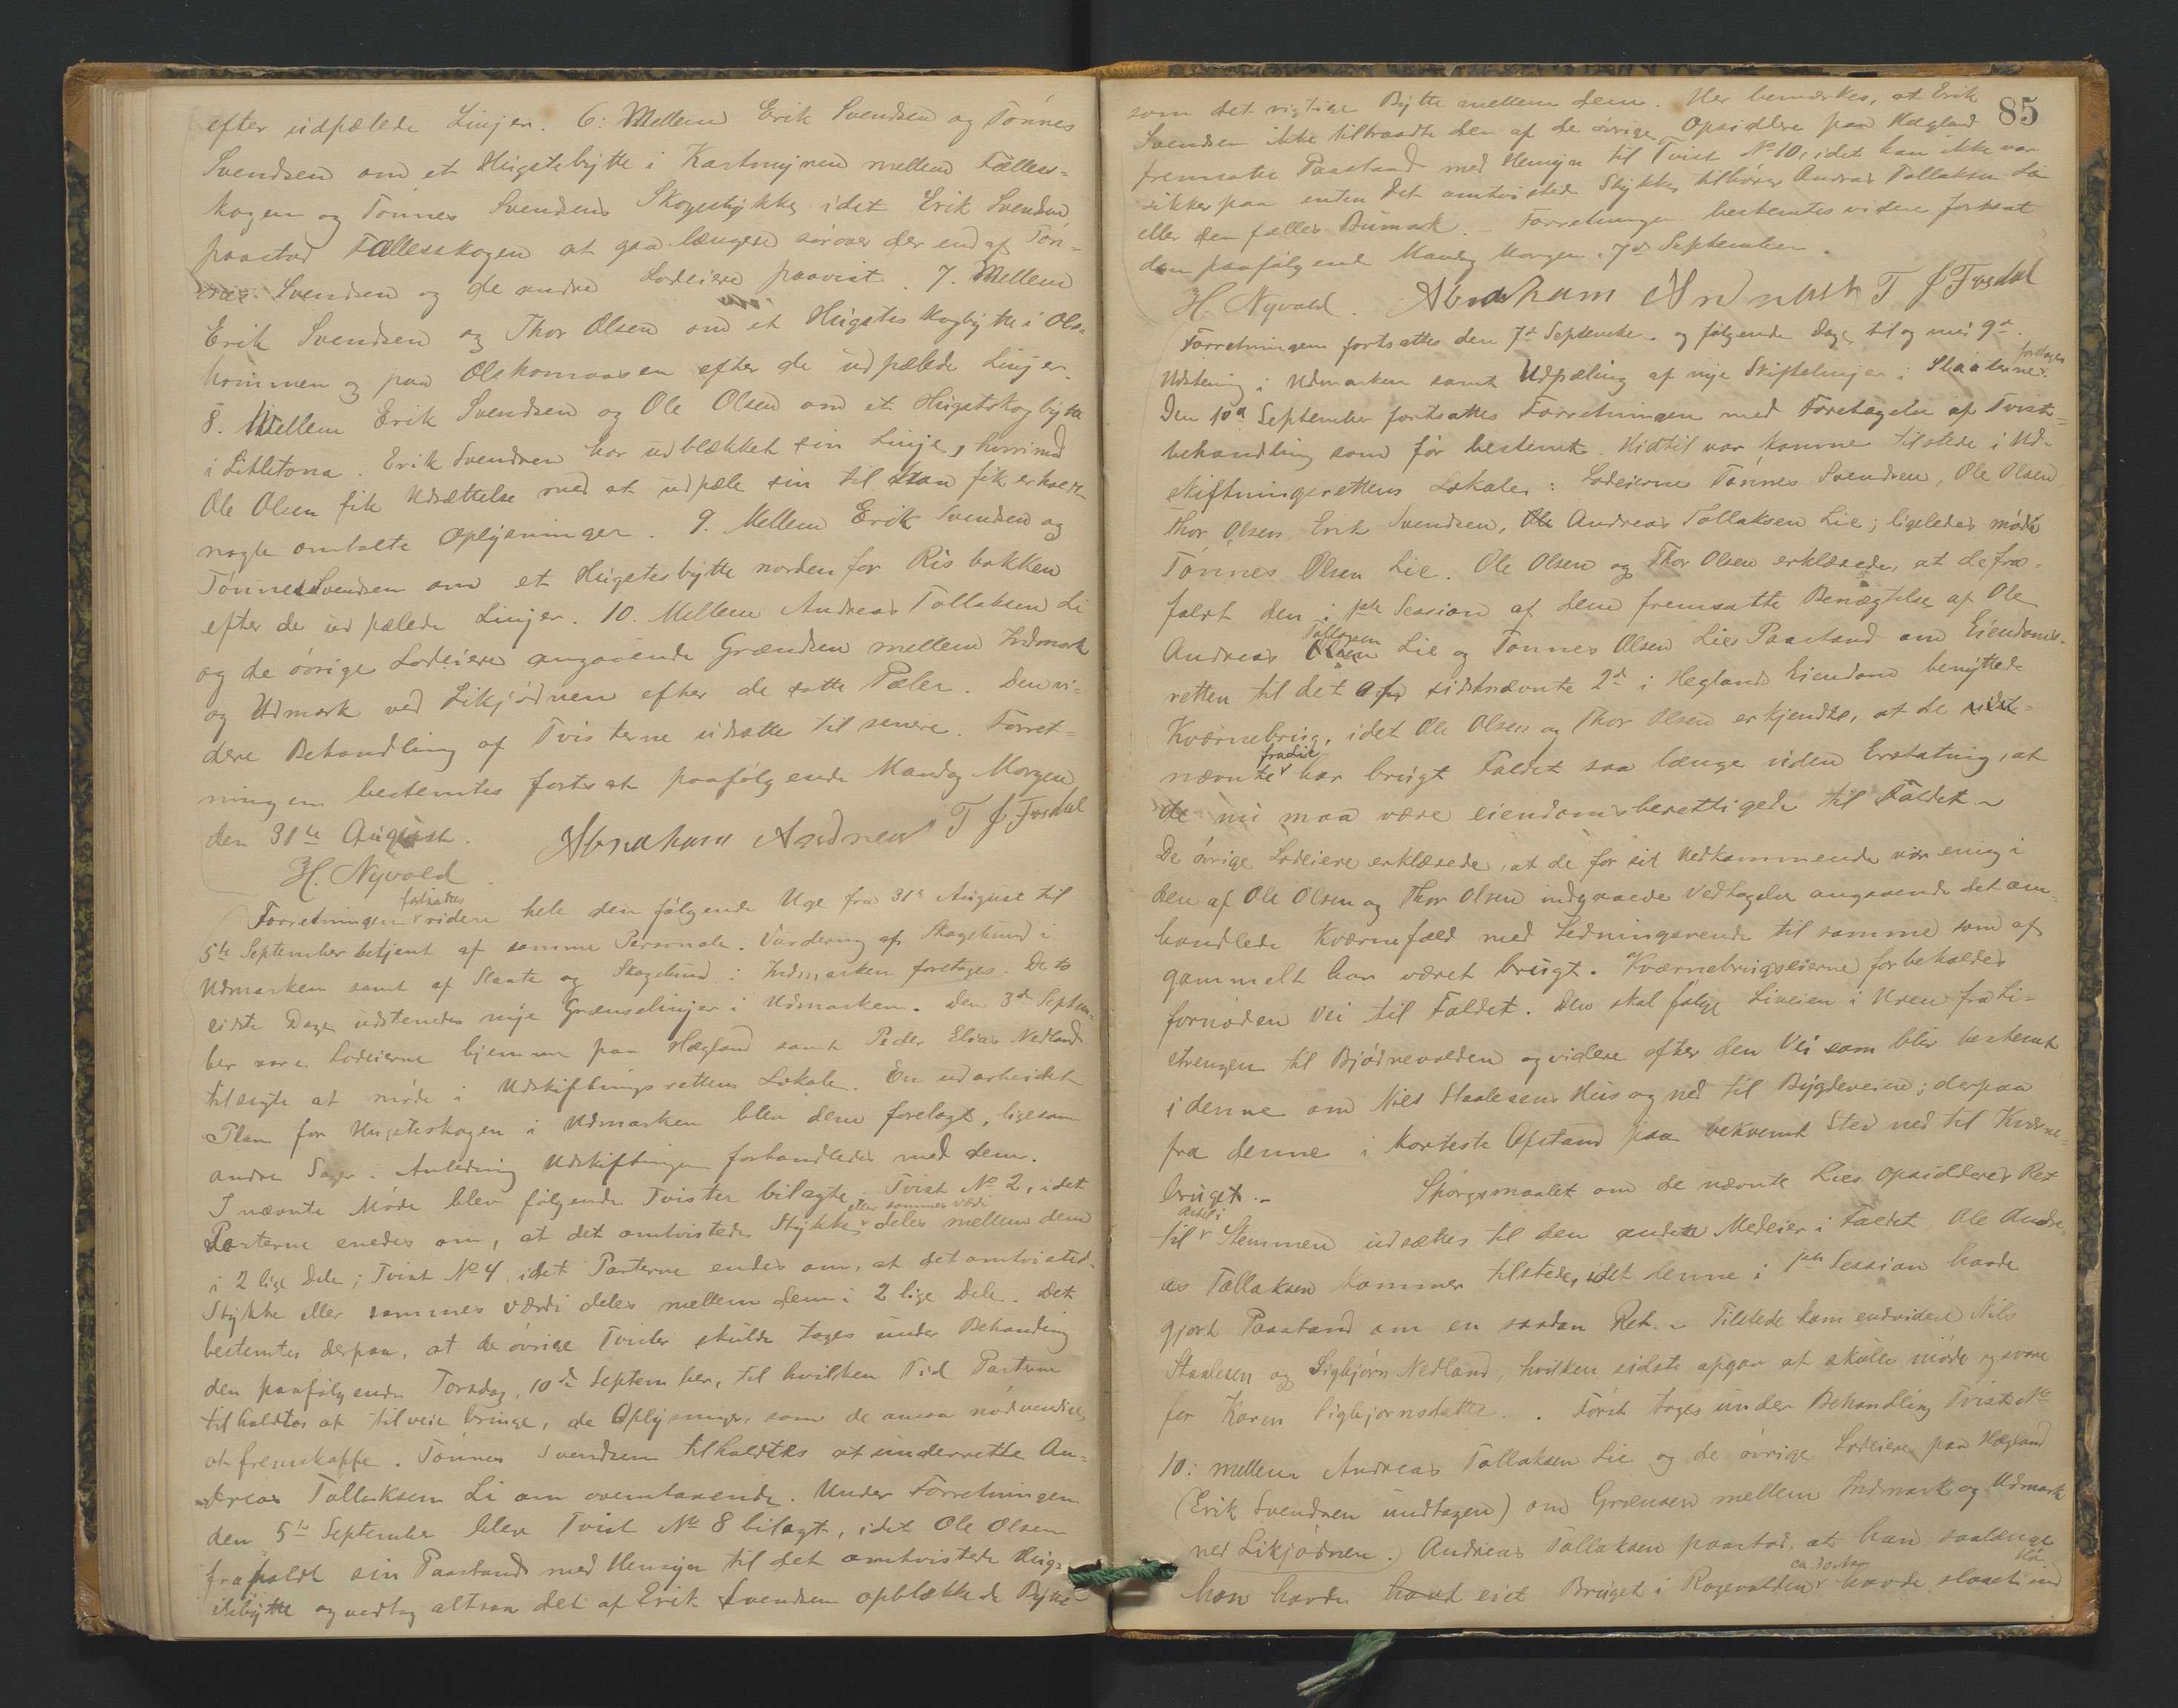 efter udpælede Linjer. 6: Mellem Erik Svendsen og Tönnes
Svendsen om et Hugstebytte i Kartmyren mellem Fælles-
kogen og Tönnes Svendsens Skogstykke, idet Erik Svendsen
paastod Fællesskogen at gaa længere sörover der end af Tön-
nes Svendsen og de andre Lodeiere paavist. 7. Mellem
Erik Svendsen og Thor Olsen om et Hugstes kogbytte i Ols-
kommen og paa Olskomaasen efter de udpælede Linjer.
8. Mellem Erik Svendsen og Ole Olsen om et Hugstskogbytte
i Litletona. Erik Svendsen har udblækket sin Linje, hvorimod
Ole Olsen fik Udsættelse med at udpæle sin til han fik erhverv
nogle omtalte Oplysninger. 9. Mellem Erik Svendsen og
Tönnes Svendsen om et Hugstesbytte norden for Ris bakken
efter de udpælede Linjer. 10. Mellem Andreas Tollaksen Li
og de övrige Lodeiere angaaende Grændsen mellem Indmark
og Udmark ved Likjödnen efter de satte Pæler. Den vi-
dere Behandling af Tvisterne udsatte til senere. Forret-
ningen bestemtes fortsat paafölgende Mandag Morgen
den 31te August.
H. Nyvold Abraham Andreas T J Fosdal
fortsattes
Forretningen videre hele den fölgende Uge fra 31te August til
5te September betjent af samme Personale. Vurdering af Skogebund i
Udmarken samt af Slaatte og Skogbund i Indmarken foretoges. De to
sidste Dage udstenedes nye Grænselinjer i Udmarken. Den 3de Septem-
ber vare Lodeierne hjemme paa Hægland samt Peder Elias Nedland
tilsagte at möde i Udskiftningsrettens Lokale. En udarbeidet
Plan for Hugsteskogen i Udmarken blev dem forelagt, ligesom
andre Sager i Anledning Udskiftningen forhandledes med dem.
I nævnte Möde blev fölgende Tvister bilagte: Tvist No 2, idet
eller sammes værdi
Parterne enedes om, at det omtvistede Stykke deles mellem dem
i 2 lige Dele; Tvist No 4, idet Parterne enedes om, at det omtvistede
Stykke eller sammes værdi deles mellem dem i 2 lige Dele. Det
bestemtes derpaa, at de övrige Tvister skulde tages under Behandling
den paafölgende Torsdag, 10de September, til hvilken Tid Parterne
tilholdtes at tilveie bringe, de Oplysninger, som de ansaa nödvendige
at fremskaffe. Tönnes Svendsen tilholdtes at underrette An-
dreas Tollaksen Li om ovenstaaende. Under Forretningen
den 5te September blev Tvist No 8 bilagt, idet Ole Olsen
frafaldt sin Paastand med Hensyn til det omtvistede Hug-
stebytte og vedtog altsaa det af Erik Svendsen opblækkede Bytte
85
som det rigtige Bytte mellem dem. Her bemærkes, at Erik
Svendsen ikke tiltraadte den af de övrige Opsiddere paa Hægland
fremsatte Paastand med Hensyn til Tvist No 10, idet han ikke var
sikker paa enten det omtvistede Stykke tilhörer Andreas Tollaksen Lie
eller den fælles Bumark. – Forretningen bestemtes videre fortsat
den paafölgende Mandag Morgen, 7de September.
H. Nyvold. Abraham Andreas T J Fosdal
Forretningen fortsattes den 7de September og fölgende Dage til og med 9de.
foretoges
Udstening i Udmarken samt Udpæling af nye Skiftelinjer i Slaatterne.
Den 10de September fortsattes Forretningen med Foretagelse af Tvist-
behandling som för bestemt. Hidtil var komne tilstede i Ud-
skiftningsrettens Lokale: Lodeierne Tönnes Svendsen, Ole Olsen,
Thor Olsen, Erik Svendsen, Ole Andreas Tollaksen Lie; ligeledes mödte
Tönnes Olsen Lie. Ole Olsen og Thor Olsen erklærede, at de fra-
faldt den i 1ste Session af dem fremsatte Benægtelse af Ole
Tollaksen
Andreas Olsen Lie og Tönnes Olsen Lies Paastand om Eiendoms-
retten til det af sidstnævnte 2de i Heglands Eiendom benyttede
Kværnebrug, idet Ole Olsen og Thor Olsen erkjendte, at de sidst-
fra Lie
nævnte har brugt Faldet saa længe uden Erstatning, at
de nu maa være eiendomsberettigede til Faldet. –
De övrige Lodeiere erklærede, at de for sit Vedkommende var enig i
den af Ole Olsen og Thor Olsen indgaaede Vedtagelse angaaende det om-
handlede Kværnefald med Ledningsrende til samme som af
gammelt har været brugt. Kværnebrugseierne forbeholdes
fornöden Vei til Faldet. Den skal fölge Liveien i Uren fra Li-
strengen til Bjödnevolden og videre efter den Vei som blir bestemt
i denne om Nils Staalesens Hus og ned til Bygdeveien; derpaa
fra denne i korteste Afstand paa bekvemt Sted ned til Kværne-
bruget. – Spörgsmaalet om de nævnte Lies Opsidderes Ret
Andel i
til Stemmen udsættes til den anden Medeier i Faldet Ole Andre-
as Tollaksen kommer tilstede, idet denne i 1ste Session havde
gjort Paastand om en saadan Ret. – Tilstede kom endvidere Nils
Staalesen og Sigbjörn Nedland, hvilken sidste opgav at skulle möde og svare
for Karen Sigbjörnsdatter. Först toges under Behandling Tvist No
10: mellem Andreas Tollaksen Lie og de övrige Lodeiere paa Hægland
(Erik Svendsen undtagen) om Grænsen mellem Indmark og Udmark
ved Likjödnen. Andreas Tollaksen paastod, at han saalænge
ca. 30 Aar
han havde havd eiet Bruget i Rogevolden havde slaaet ind